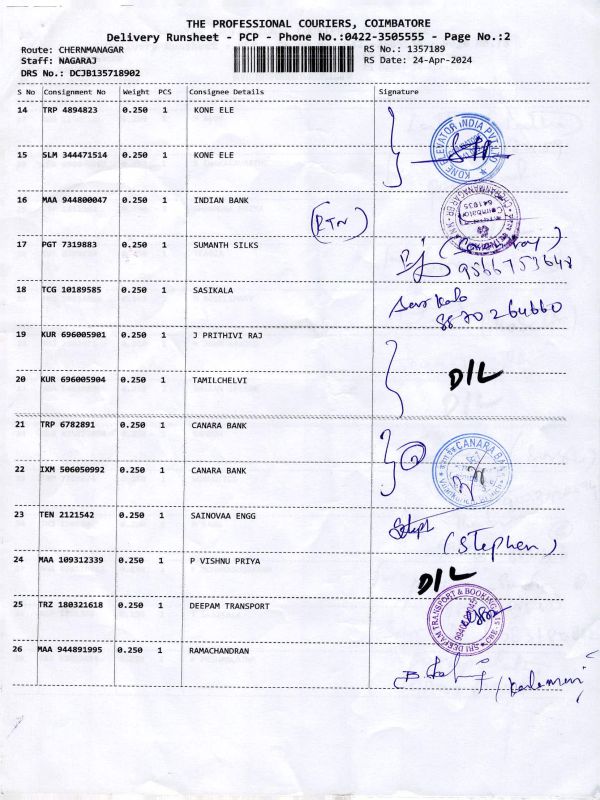 THE PROFESSIONAL COURIERS, COIMBATORE
Delivery Runsheet - PCP - Phone No.:0422-3505555 - Page No.:2
Route: CHERNMANAGAR RS No.: 1357189
Staff: NAGARAJ RS Date: 24-Apr-2024
DRS No.: DCJB135718902
S No Consignment No Weight PCS Consignee Details Signature
14 TRP 4894823 0.250 1 KONE ELE
KONE ELEVATOR INDIA PVT LTD
15 SLM 344471514 0.250 1 KONE ELE
16 MAA 944800047 0.250 1 INDIAN BANK
(RTN)
641035
17 PGT 7319883 0.250 1 SUMANTH SILKS
9566753648
18 TCG 10189585 0.250 1 SASIKALA
Sasikala
8870264660
19 KUR 696005901 0.250 1 J PRITHIVI RAJ
20 KUR 696005904 0.250 1 TAMILCHELVI D/L
21 TRP 6782891 0.250 1 CANARA BANK
CANARA BA
22 IXM 506050992 0.250 1 CANARA BANK
23 TEN 2121542 0.250 1 SAINOVAA ENGG
(Stephen)
24 MAA 109312339 0.250 1 P VISHNU PRIYA D/L
25 TRZ 180321618 0.250 1 DEEPAM TRANSPORT
SRI DEEPAM TRANSPORT & BOOKING
26 MAA 944891995 0.250 1 RAMACHANDRAN